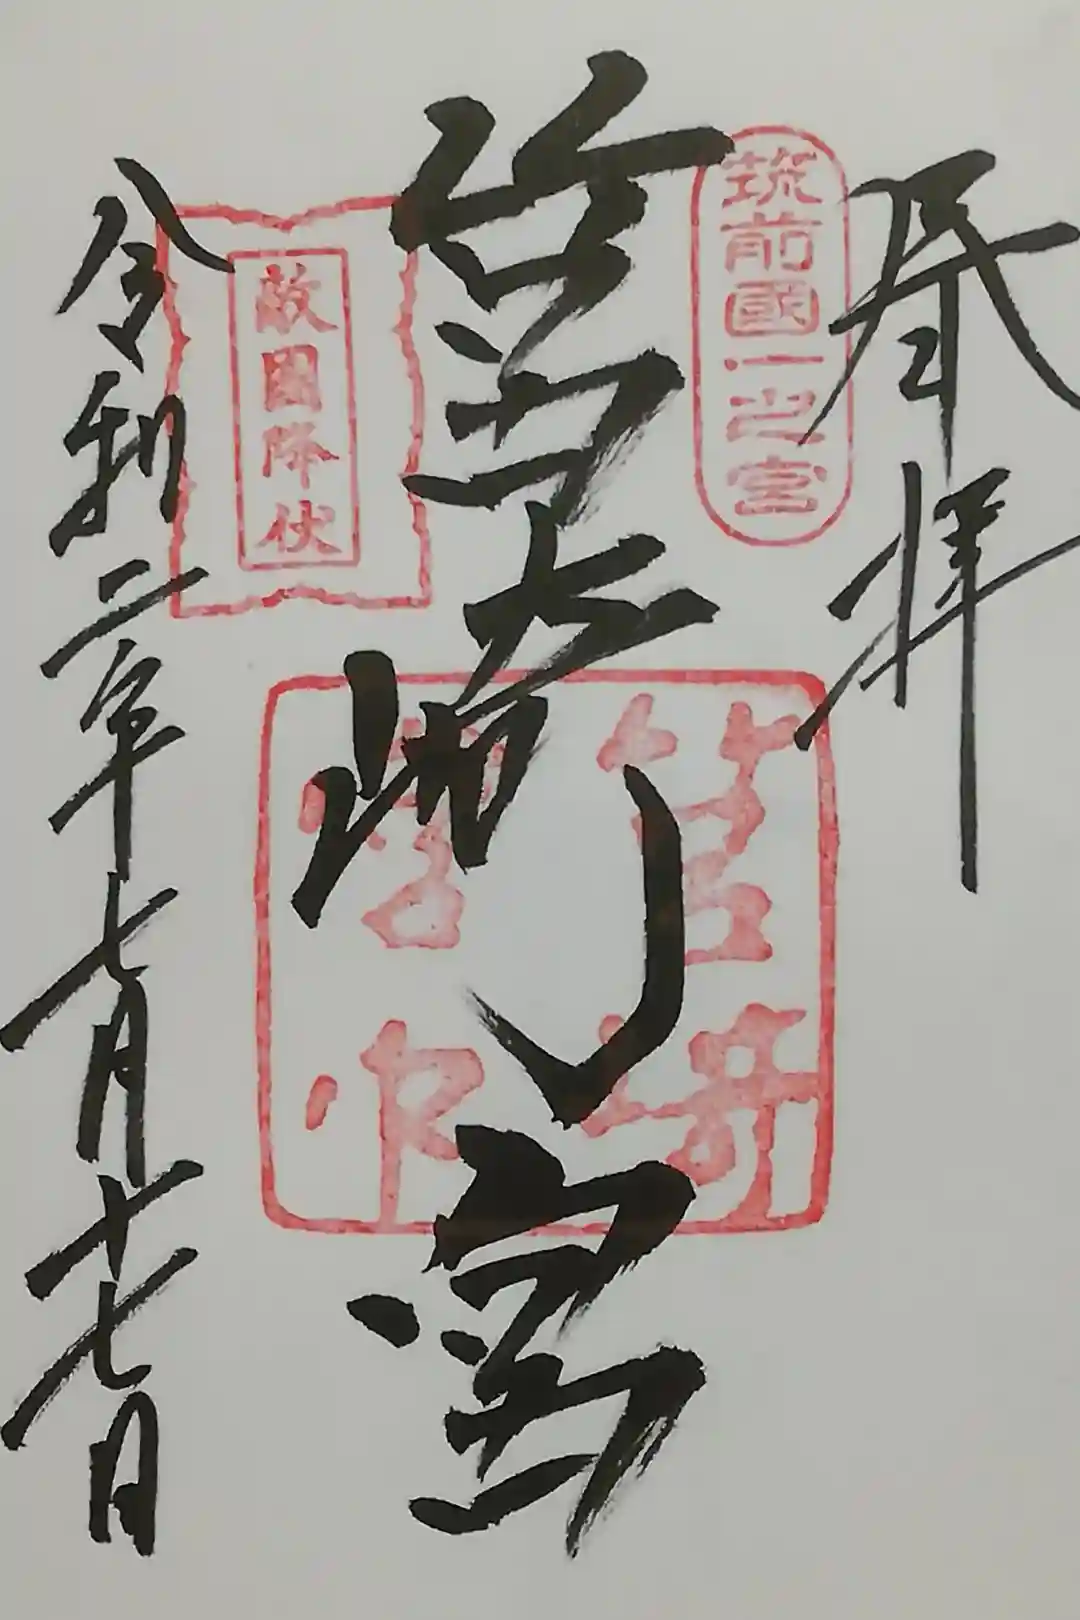 奉拝
筑前國一之宮
筥崎宮
敵國降伏
筥崎
宮印
令和二年七月十七日